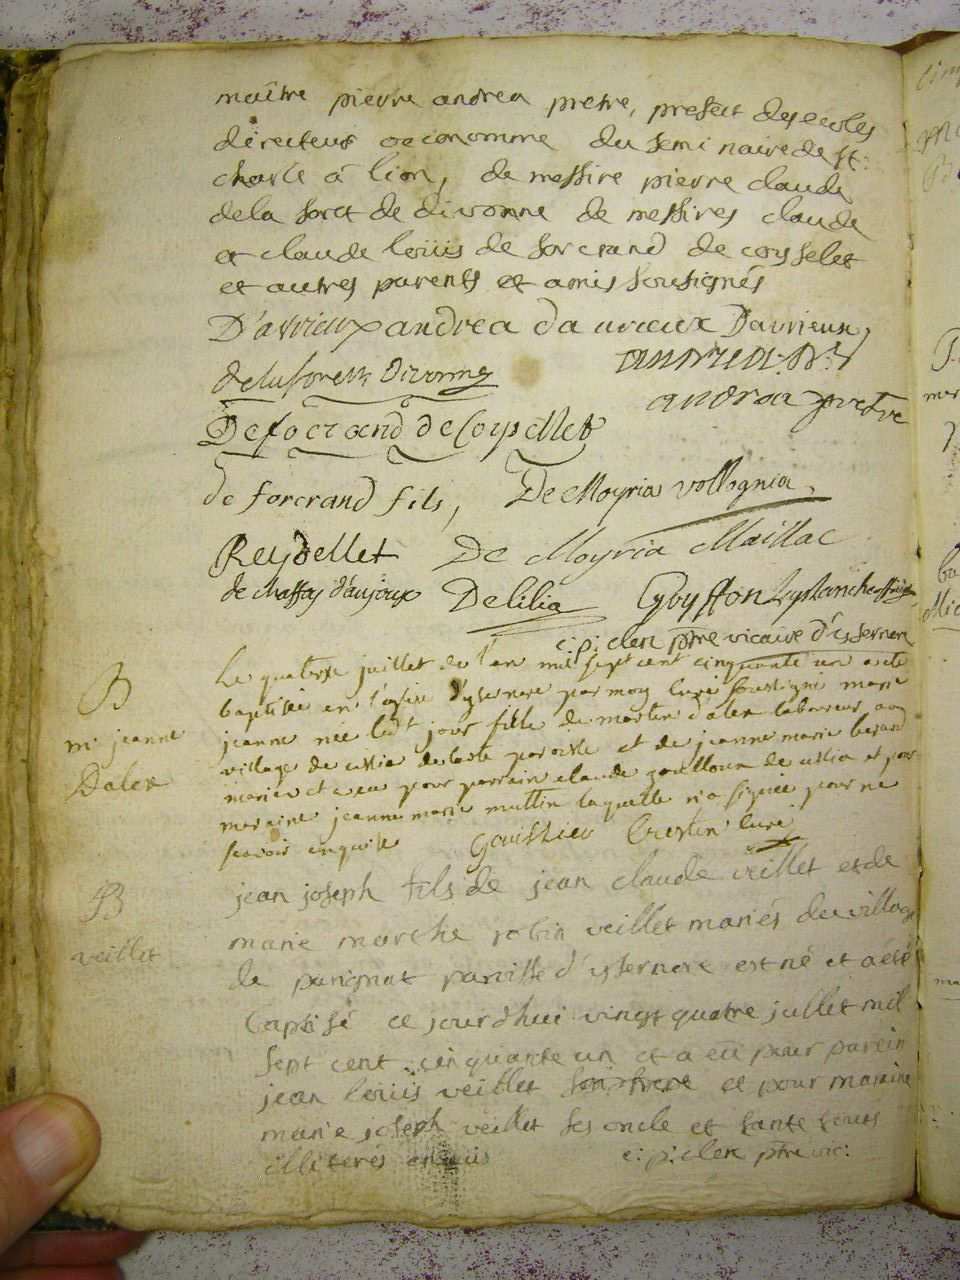 maître pierre andrea pretre, prefect des ecoles
directeur oeconomme du seminaire de st:
charle à lion, de messire pierre claude
de la foret de divonne de messires claude
et claude loüis de forcrand de coysselet
et autres parents et amis soussignés
D'avrieux andrea davrieux Davrieux,
andrea
delaforest Divonne
andrea pretre
De forcrand de Coysellet
de forcrand fils, De Moyria vollognia
Reydellet De Moyria Maillac
de chaffoy d'anjoux Delilia
c: p: clerc ptre vicaire d'issernore
B Le quatorze juillet de l'an mil sept cent cinquante un a eté
baptisée en l'eglise d'ysernore par moy curé soussigné marie
m: jeanne jeanne née ledt jour fille de martin dalex laboureur au
Dalex village de ussia de laste paroisse et de jeanne marie
mariés et a eu pour parrain claude de ussia et pour
maraine jeanne marie mattin laquelle n'a signée pour ne
scavoir enquise curé
B jean joseph fils de jean claude veillet et de
marie marthe robin veillet mariés du village
veillet de perignat paroisse d'yssernore est né et a été
baptisé ce jourdhui vingt quatre jullet mil
sept cent cinquante un et a eü pour parein
jean loüis veillet son frere et pour maraine
marie joseph veillet ses oncle et tante touts
illiterés enquis c: p: clerc ptre vic: